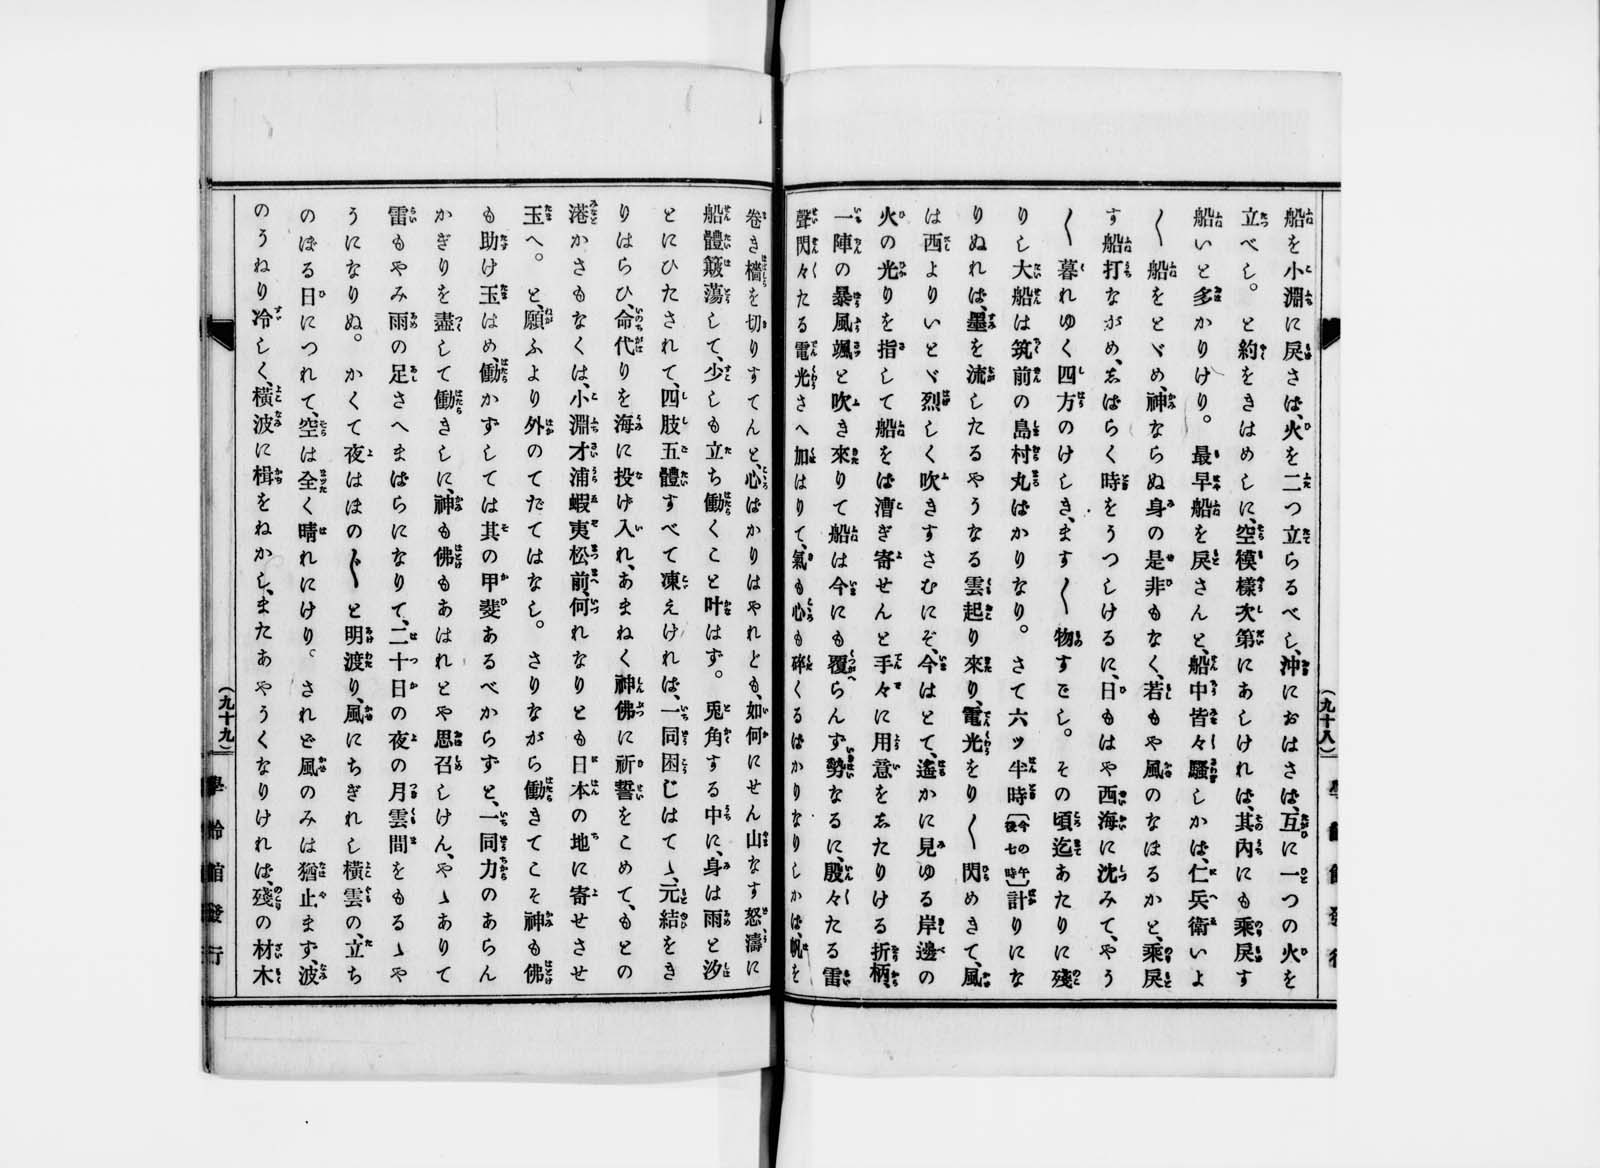 船を小淵に戻さば、火を二つ立らるべし、沖におはさば、互に一つの火を
立べし。と約をきはめしに、空模樣次第にあしければ、其內にも乘戻す
船いと多かりけり。最早船を戻さんと、船中皆々騷しかば、仁兵衛いよ
〱船をとゞめ、神ならぬ身の是非もなく、若もや風のなほるかと、乘戻
す船打ながめ、志ばらく時をうつしけるに、日もはや西海に沈みて、やう
〱暮れゆく四方のけしき、ます〱物すごし。その頃迄あたりに殘
りし大船は筑前の島村丸ばかりなり。さて六ッ半時〔今の午後七時〕計りにな
りぬれば、墨を流したるやうなる雲起り來り、電光をり〱閃めきて、風
は西よりいとゞ烈しく吹きすさむにぞ、今はとて、遙かに見ゆる岸邊の
火の光りを指して船をば漕ぎ寄せんと手々に用意を志たりける折柄
一陣の暴風颯と吹き來りて船は今にも覆へらんず勢なるに、殷々たる雷
聲閃々たる電光さへ加はりて、氣も心も碎くるばかりなりしかば、帆を
(九十八)
卷き檣を切りすてんと、心ばかりはやれとも、如何にせん山なす怒濤に
船體簸蕩して、少しも立ち働くこと叶はず。兎角する中に、身は雨と汐
とにひたされて、四肢五體すべて凍えければ、一同困じはてゝ、元結をき
りはらひ、命代りを海に投げ入れ、あまねく神佛に祈誓をこめて、もとの
港かさもなくは、小淵才浦蝦夷松前、何れなりとも日本の地に寄せさせ
玉へ。と、願ふより外のてだてはなし。さりながら働きてこそ神も佛
も助け玉はめ、働かずしては其の甲斐あるべからずと、一同力のあらん
かぎりを盡して働きしに、神も佛もあはれとや思召しけん、やゝありて
雷もやみ雨の足さへまばらになりて、二十日の夜の月雲間をもるゝや
うになりぬ。かくて夜はほの〲と明渡り、風にちぎれし橫雲の、立ち
のぼる日につれて、空は全く晴れにけり。されど風のみは猶止まず、波
のうねり冷しく、橫波に楫をねかし、またあやうくなりければ、殘の材木
(九十九)
學齡館發行